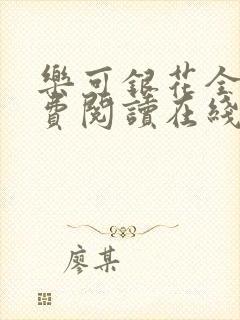 樂可銀花全
費閱讀在綫
廖某